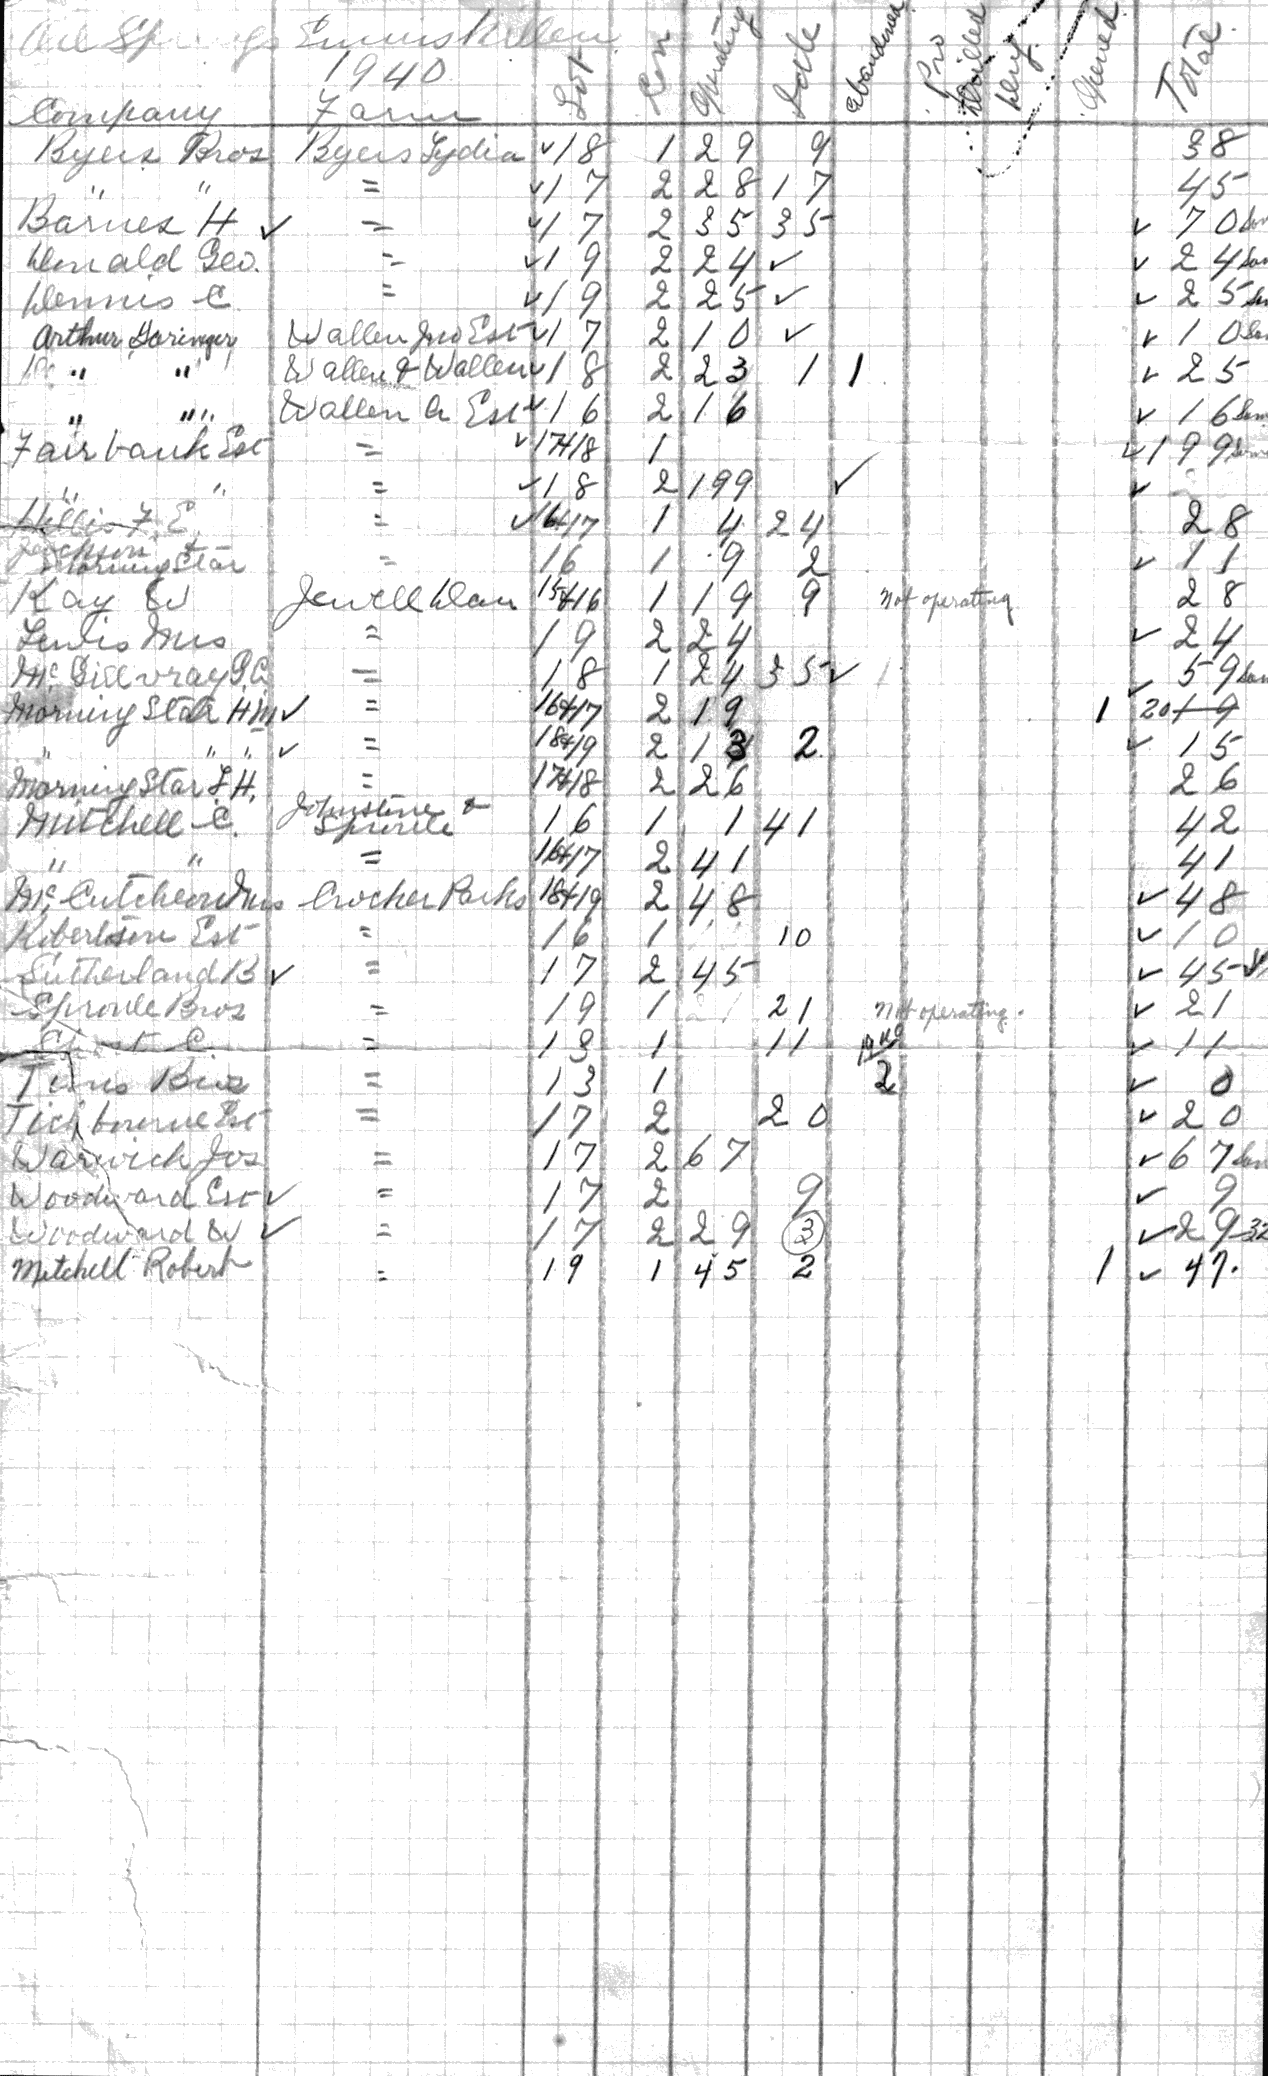 Oil Springs Enniskillen
1940
Company Farm Lot Con Operating Idle Abandoned Pro Drilled Opened Total
Byers Bros Byers Lydia ✓18 1 29 9 38
" " = ✓17 2 28 17 45
Barnes H ✓ = ✓17 2 35 35 ✓ 70
Donald Geo. = ✓19 2 24 ✓ ✓ 24
Dennis C. = ✓19 2 25 ✓ ✓ 25
Arthur Goringer Wallen Jno Est ✓17 2 10 ✓ ✓ 10
" " Wallen & Wallen ✓18 2 23 1 1 ✓ 25
" " Wallen A Est ✓16 2 16 ✓ 16
Fairbank Est = ✓17+18 1 ✓199
" " = ✓18 2 199 ✓ ✓
Hillis F. E. = ✓16+17 1 4 24 28
Jackson & Morning Star = 16 1 9 2 ✓ 11
Kay W Jewell Dan 15+16 1 19 9 Not operating 28
Lewis Mrs = 19 2 24 ✓ 24
McGillvray P.C. = 18 1 24 35 ✓ ✓ 59
Morning Star H.M ✓ = 16+17 2 19 1 20 19
" " " ✓ = 18+19 2 13 2 ✓ 15
Morning Star F.H. = 17+18 2 26 26
Mitchell C. Johnstone & Sproule 16 1 1 41 42
" " = 16+17 2 41 41
McCutcheon Mrs Crocher Parks 18+19 2 48 ✓ 48
Robertson Est = 16 1 10 ✓ 10
Sutherland B ✓ = 17 2 45 ✓ 45
Sproule Bros = 19 1 21 Not operating. ✓ 21
= 13 1 11 ✓ 11
Bros = 13 1 2 ✓ 0
Tichbourne Est = 17 2 20 ✓ 20
Warwick Jos = 17 2 67 ✓ 67
Woodward Est ✓ = 17 2 9 ✓ 9
Woodward W ✓ = 17 2 29 3 ✓ 29 32
Mitchell Robert = 19 1 45 2 1 ✓ 47.